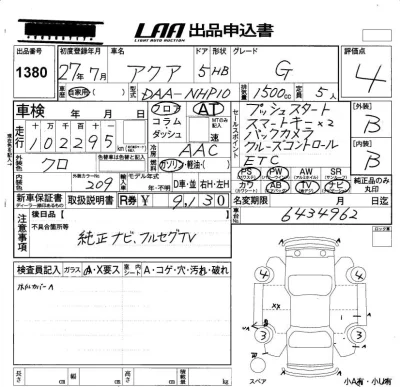 LAA 出品申込書
LIGHT AUTO AUCTION
出品番号 初度登録年月 車名 ドア 形状 グレード 評価点
1380 27年7月 アクア 5 HB G 4
車歴 自家用 型式 DAA-NHP10 排気量 1500cc 定員 5人
車検 年 月 日 フロア AT
コラム
ダッシュ 速
セールスポイント
プッシュスタート
スマートキー×2
バックカメラ
クルーズコントロール
ETC
【外装】 B
【内装】 B
走行 十 万 千 百 十 一
102295 km
冷房 AAC
外装色 クロ 色替車は色替と記入
燃料 ガソリン・軽油・( )
内装色 外装カラーNo. 209
輸入車 モデル年式 年・不明 D車・並 右H・左H
PS PW AW SR
カワ AB TV ナビ
純正品のみ丸印
新車保証書 取扱説明書 R券 ¥ 9,130
名変期限 月 日迄
車台No. 6434962
注意事項
後日品【 】
不具合箇所等
純正ナビ、フルセグTV
検査員記入 ガラス A・X要ス 車内シート A・コゲ・穴・汚れ・破れ
4 4
4 4
XX
スペア
長さ cm 幅 cm 高さ cm 積載量 kg
小A有・小U有